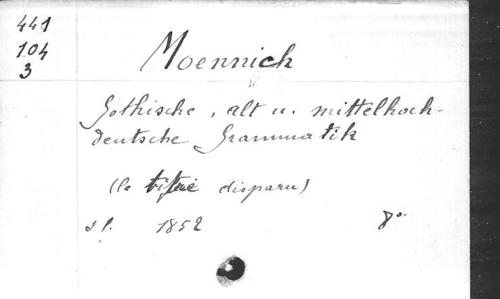 441
104
3
Moennich
Gothische, alt u. mittelhoch-
deutsche Grammatik
(le titre disparu)
s.l. 1852 8°